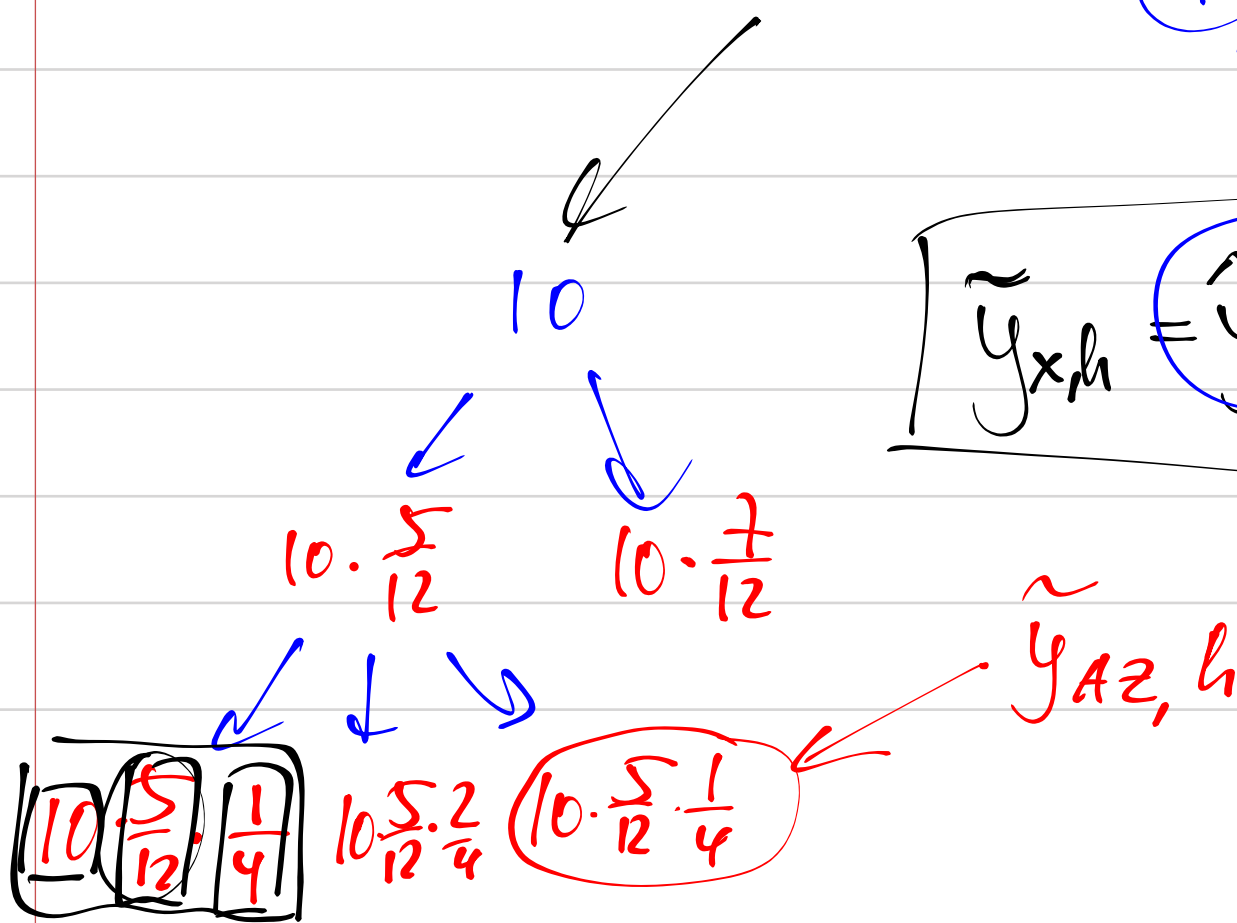 10
ỹx,h = ŷ
10 · 5/12 10 · 7/12
ỹAZ, h
10 · 5/12 · 1/4 10 · 5/12 · 2/4 10 · 5/12 · 1/4